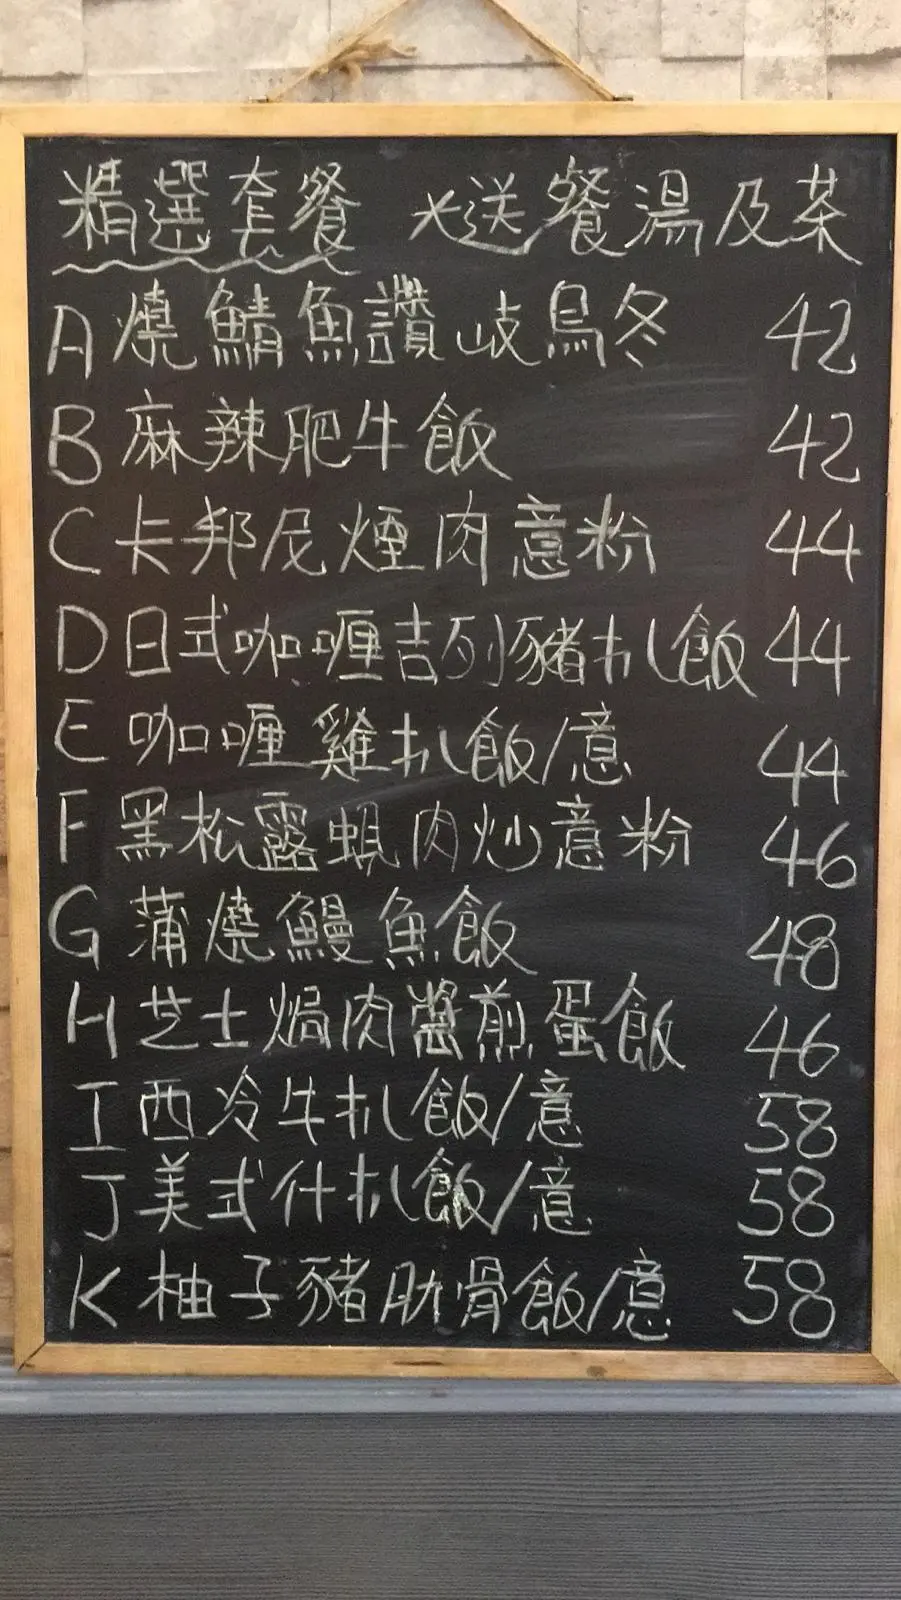 精選套餐 *送餐湯及茶
A 燒鯖魚讚岐烏冬 42
B 麻辣肥牛飯 42
C 卡邦尼煙肉意粉 44
D 日式咖喱吉列豬扒飯 44
E 咖喱雞扒飯/意 44
F 黑松露蜆肉炒意粉 46
G 蒲燒鰻魚飯 48
H 芝士焗肉醬煎蛋飯 46
I 西冷牛扒飯/意 58
J 美式什扒飯/意 58
K 柚子豬肋骨飯/意 58